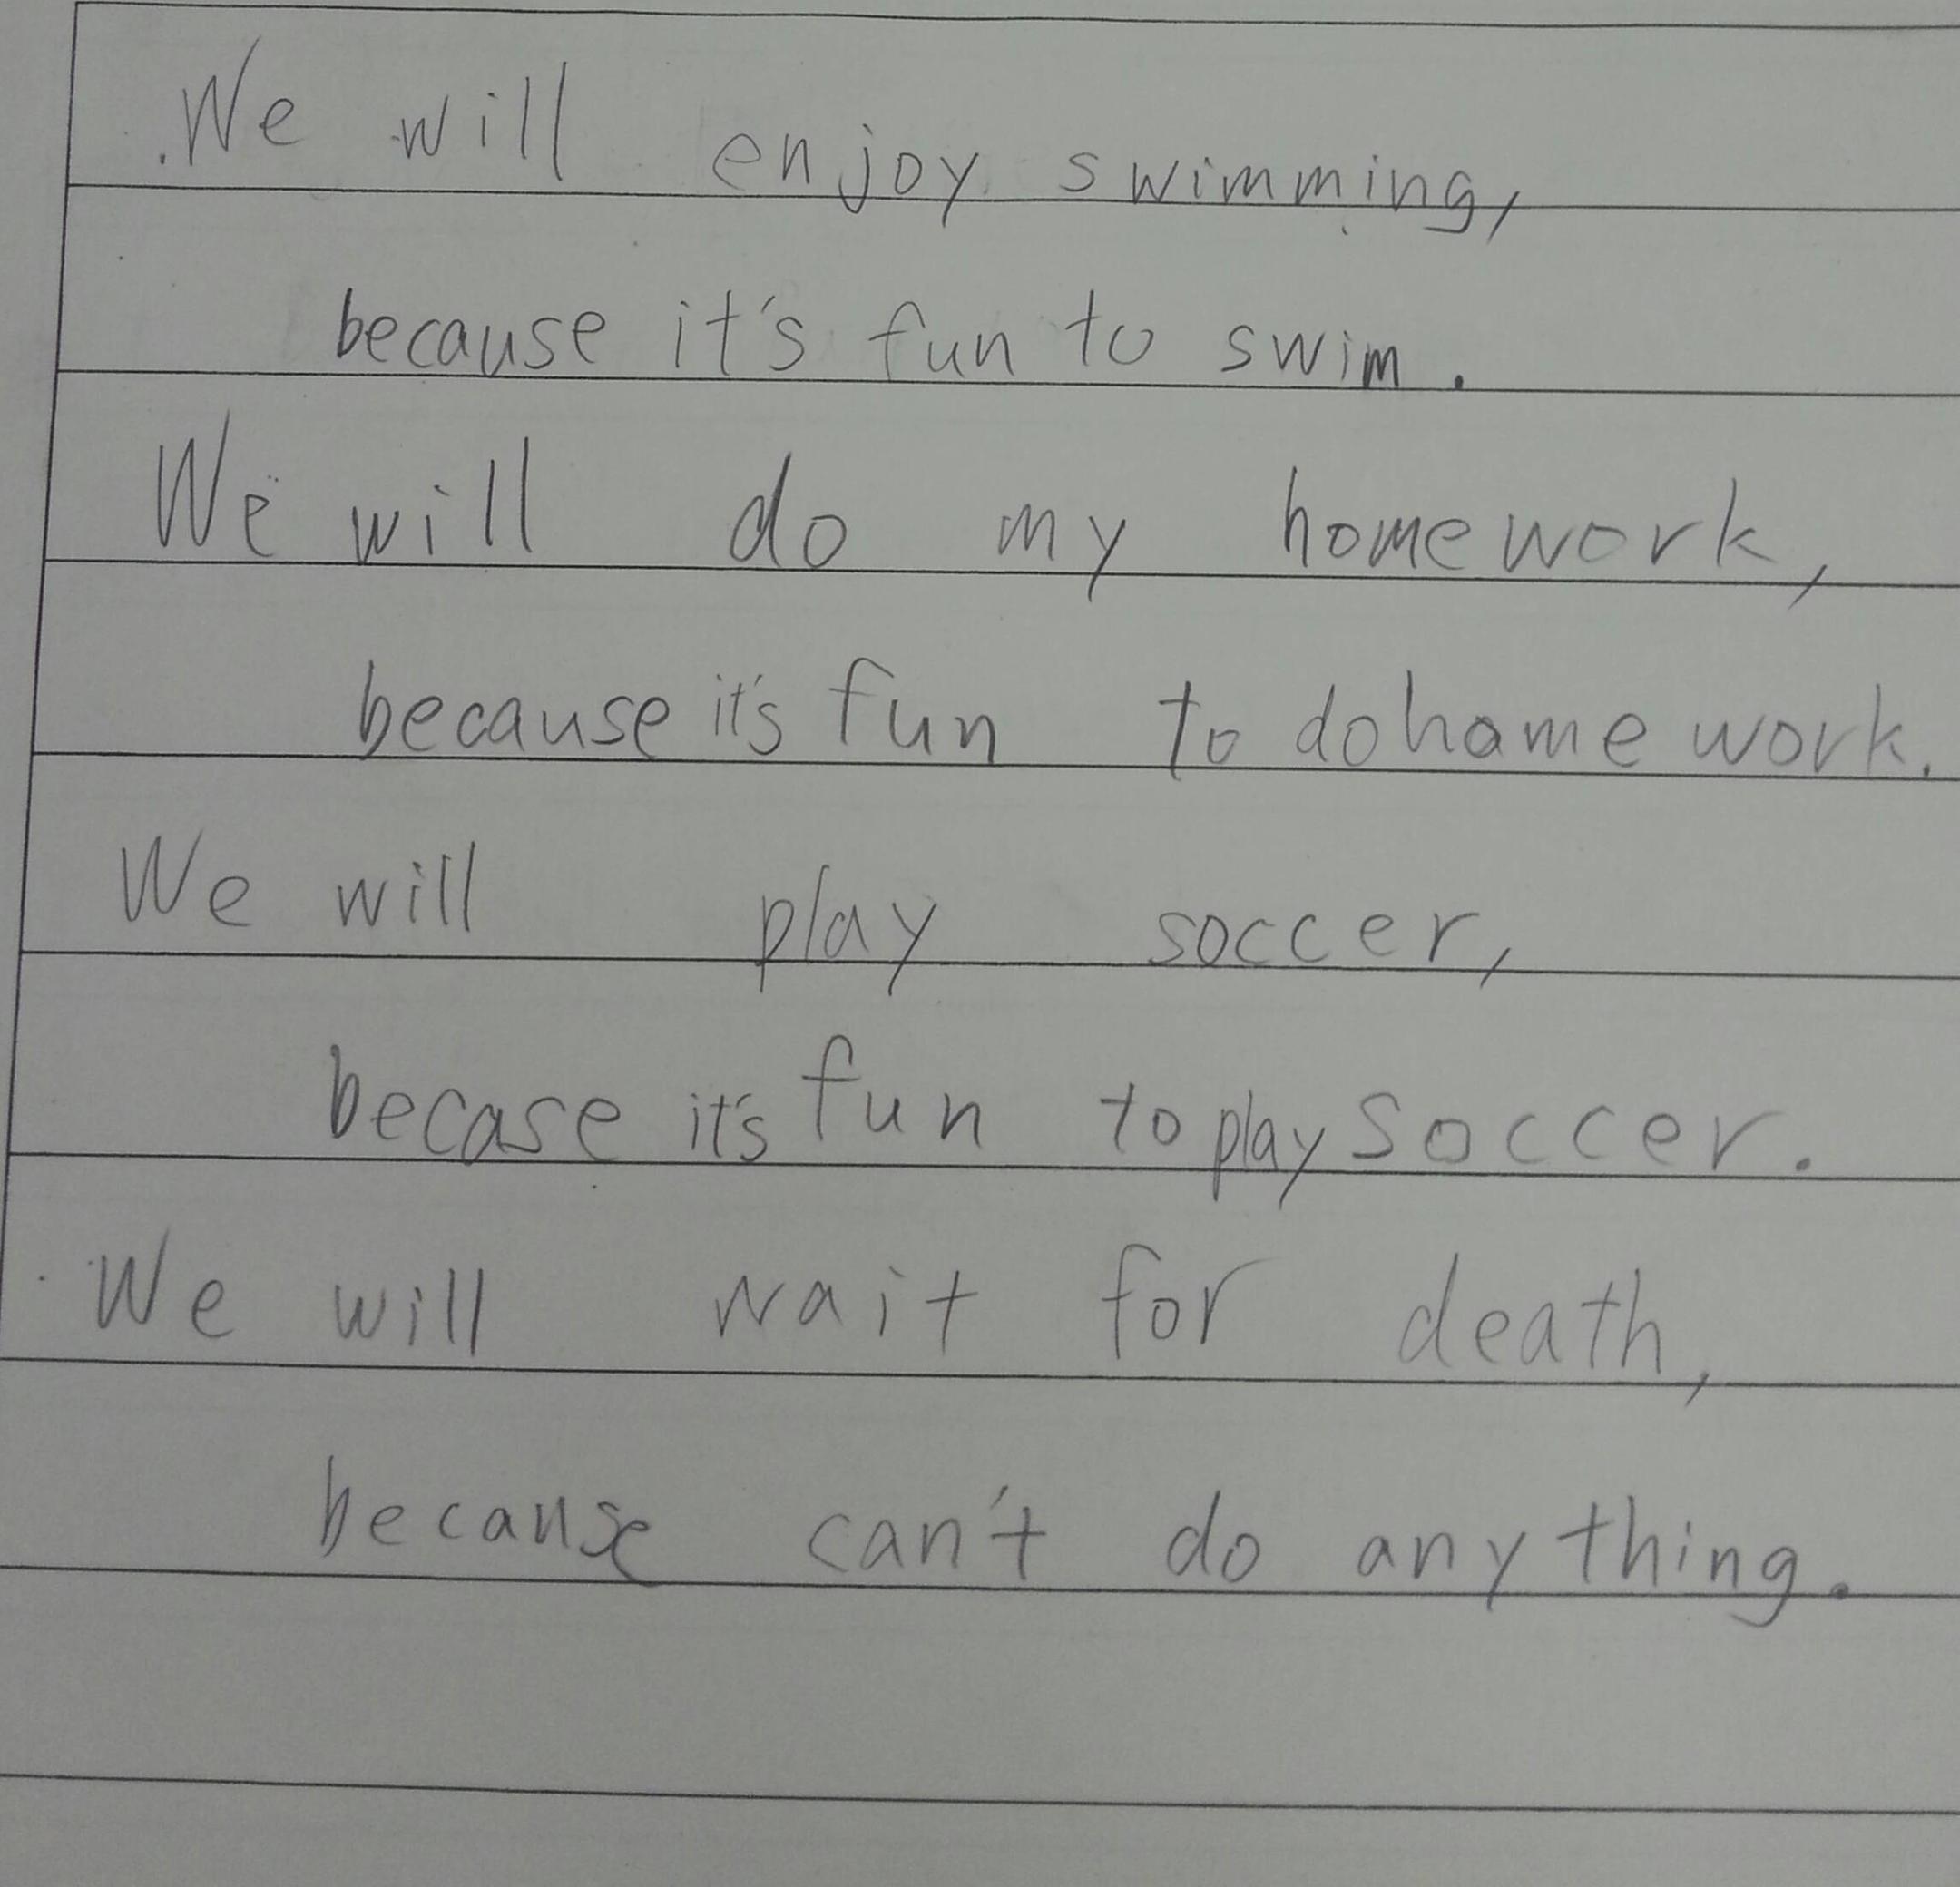 We will enjoy swimming,
because it's fun to swim.
We will do my homework,
because it's fun to do hame work.
We will play soccer,
becase it's fun to play soccer.
We will wait for death,
because can't do anything.